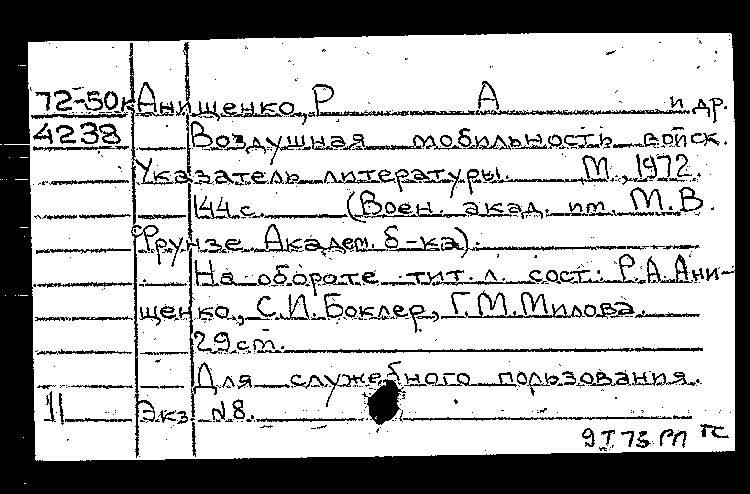 72-50к Анищенко, Р А и др.
4238 Воздушная мобильность войск.
Указатель литературы. М., 1972.
144 с. (Воен. акад. им. М.В.
Фрунзе. Академ. б-ка).
На обороте тит. л. сост.: Р.А. Ани-
щенко, С.И. Боклер, Г.М. Милова.
29 см.
Для служебного пользования.
11 Экз. №8.
9 I 73 РП ГС